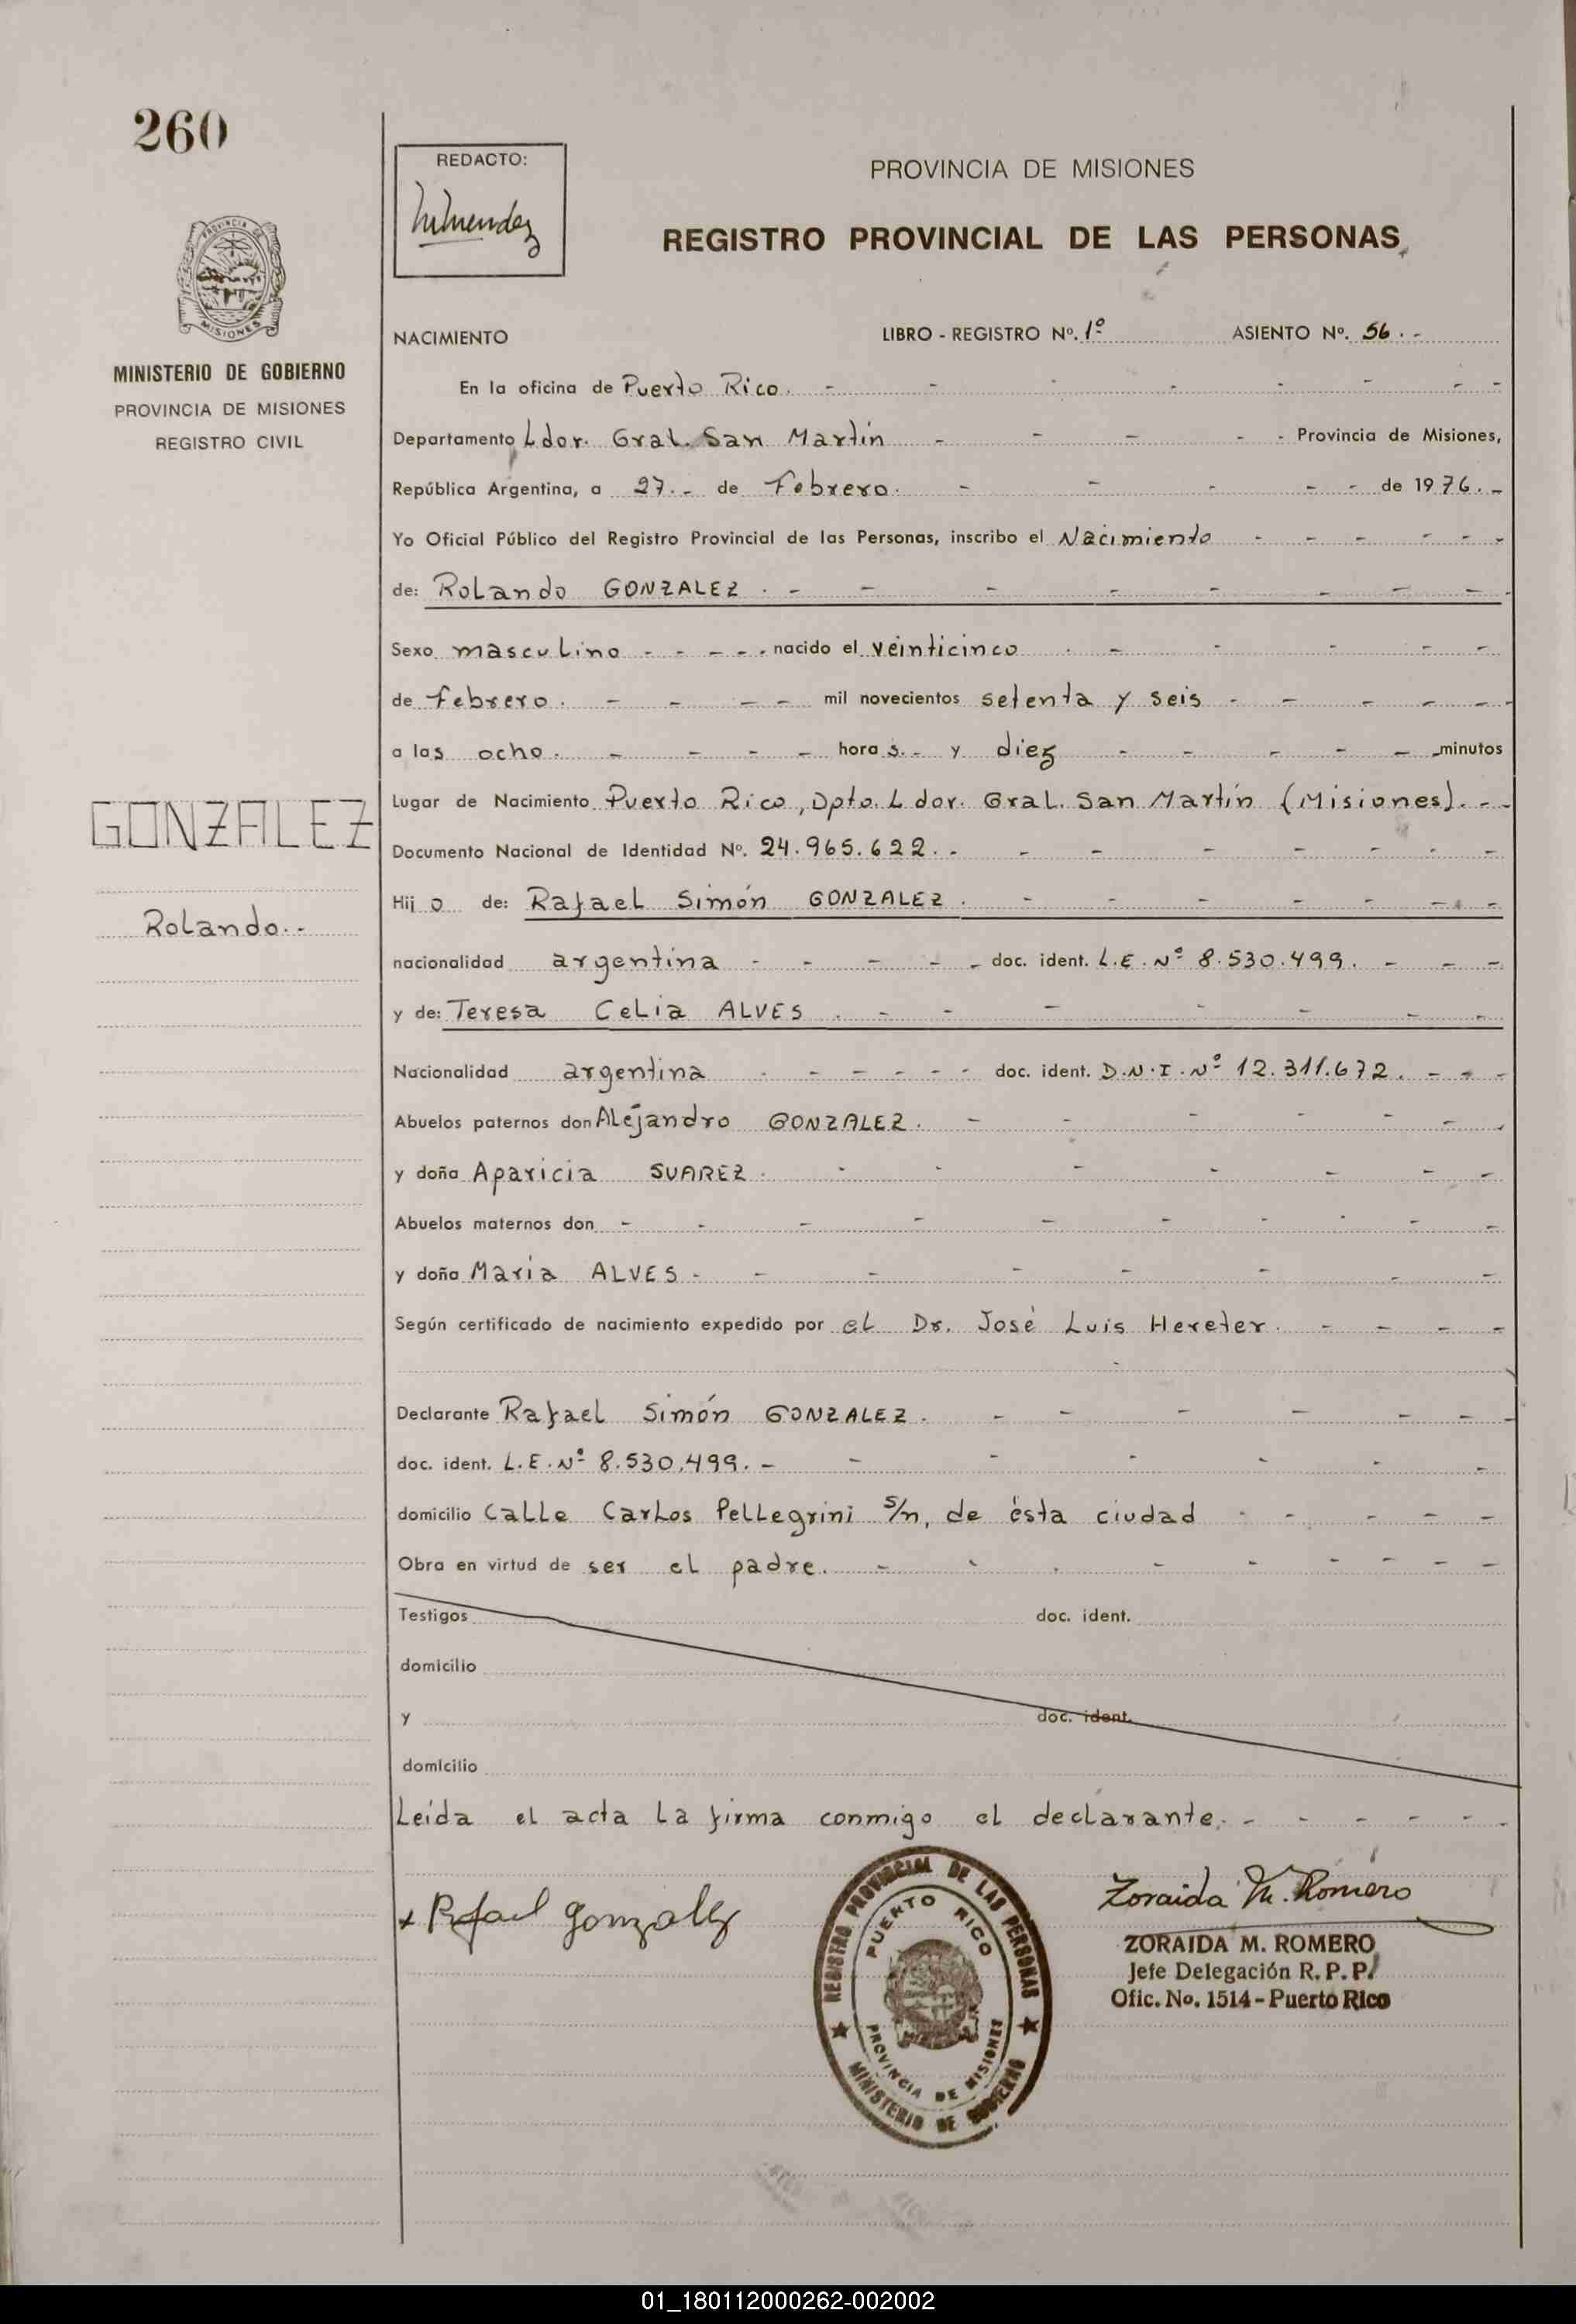 260
REDACTO:
PROVINCIA DE MISIONES
REGISTRO PROVINCIAL DE LAS PERSONAS
PROVINCIA DE
MISIONES
MINISTERIO DE GOBIERNO
PROVINCIA DE MISIONES
REGISTRO CIVIL
NACIMIENTO LIBRO - REGISTRO Nº. 1º ASIENTO Nº. 56.-
En la oficina de Puerto Rico. - - - - - - - -
Departamento Ldor. Gral. San Martín - - - - - Provincia de Misiones,
República Argentina, a 27.- de Febrero. - - - - - de 1976.-
Yo Oficial Público del Registro Provincial de las Personas, inscribo el Nacimiento - - - - - -
de: Rolando GONZALEZ . - - - - - - - -
Sexo masculino - - - - - nacido el veinticinco . - - - - -
de Febrero. - - - - mil novecientos setenta y seis - - - - - -
a las ocho. - - - - horas.- y diez - - - - - minutos
Lugar de Nacimiento Puerto Rico, Dpto. Ldor. Gral. San Martín (Misiones).- -
GONZALEZ
Documento Nacional de Identidad Nº. 24.965.622.- - - - - - - -
Rolando.-
Hijo de: Rafael Simón GONZALEZ . - - - - - - -
nacionalidad argentina - - - - - doc. ident. L.E. Nº 8.530.499. - - -
y de: Teresa Celia ALVES . - - - - - - -
Nacionalidad argentina - - - - - - doc. ident. D.N.I. Nº 12.311.672. - - -
Abuelos paternos don Alejandro GONZALEZ. - - - - - - -
y doña Aparicia SUAREZ. - - - - - - -
Abuelos maternos don - - - - - - - - - -
y doña Maria ALVES - - - - - - - -
Según certificado de nacimiento expedido por el Dr. José Luis Hereter. - - - -
Declarante Rafael Simón GONZALEZ. - - - - - - -
doc. ident. L.E. Nº 8.530.499. - - - - - - -
domicilio Calle Carlos Pellegrini s/n, de ésta ciudad - - - - - -
Obra en virtud de ser el padre. - - - - - - - - -
Testigos doc. ident.
domicilio
y doc. ident.
domicilio
Leída el acta la firma conmigo el declarante. - - - - - -
x Rafael Gonzalez
REGISTRO PROVINCIAL DE LAS PERSONAS
PUERTO RICO
PROVINCIA DE MISIONES
MINISTERIO DE GOBIERNO
Zoraida M. Romero
ZORAIDA M. ROMERO
Jefe Delegación R. P. P.
Ofic. No. 1514 - Puerto Rico
01_180112000262-002002